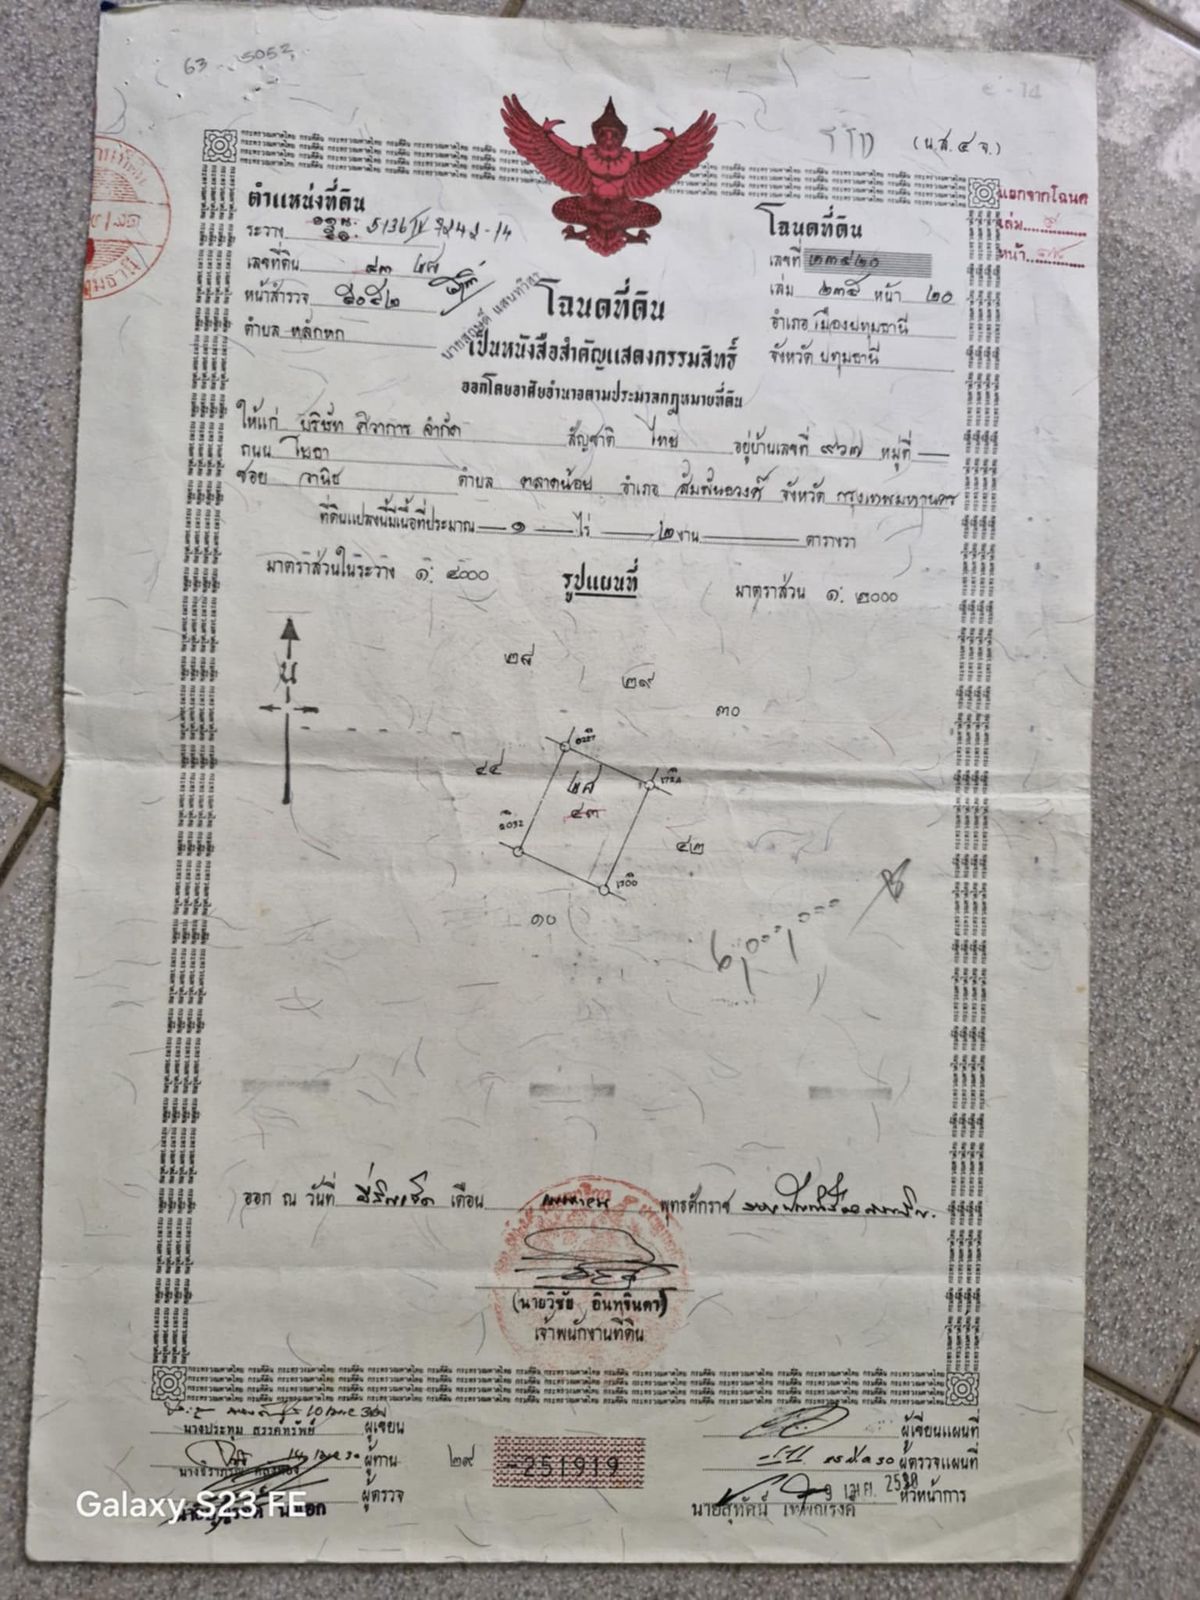 63 5052
(น.ส.๔ จ.)
ตำแหน่งที่ดิน
ระวาง 5136 IV 7242-14
เลขที่ดิน ๔๓ ๒๘
หน้าสำรวจ ๕๐๕๒
ตำบล หลักหก
โฉนดที่ดิน
เลขที่ ๒๓๕๒๐
เล่ม ๒๓๕ หน้า ๒๐
อำเภอ เมืองปทุมธานี
จังหวัด ปทุมธานี
แยกจากโฉนด
เล่ม
หน้า
โฉนดที่ดิน
เป็นหนังสือสำคัญแสดงกรรมสิทธิ์
ออกโดยอาศัยอำนาจตามประมวลกฎหมายที่ดิน
ให้แก่ บริษัท ศิวาการ จำกัด สัญชาติ ไทย อยู่บ้านเลขที่ ๙๖๗ หมู่ที่ —
ถนน โยธา
ซอย วานิช ตำบล ตลาดน้อย อำเภอ สัมพันธวงศ์ จังหวัด กรุงเทพมหานคร
ที่ดินแปลงนี้มีเนื้อที่ประมาณ — ๑ — ไร่ — ๒ งาน — ตารางวา
มาตราส่วนในระวาง ๑: ๔๐๐๐
รูปแผนที่
มาตราส่วน ๑: ๒๐๐๐
น
๒๘
๒๙
๓๐
๔๔
๒๘
๔๓
๔๒
๑๐
ออก ณ วันที่ ยี่สิบเอ็ด เดือน เมษายน พุทธศักราช
(นายวิชัย อินทจินดา)
เจ้าพนักงานที่ดิน
นางประทุม สรรค์ทรัพย์ ผู้เขียน
ผู้ทาน
ผู้ตรวจ
๒๙
-251919
ผู้เขียนแผนที่
ผู้ตรวจแผนที่
9 เม.ย. 2530 หัวหน้าการ
นายสุทัศน์ เทพณรงค์
Galaxy S23 FE